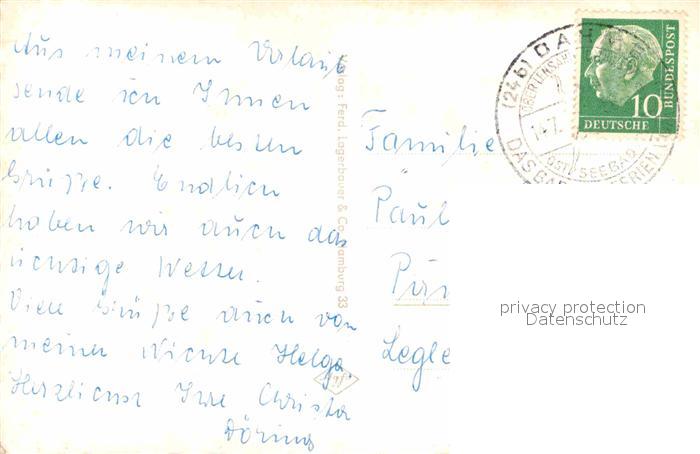 Aus meinem Urlaub
sende ich Ihnen
allen die besten
Grüße. Endlich
haben wir auch das
richtige Wetter.
Viele Grüße auch von
meiner Nichte Helga.
Herzlichst Ihre Christa
Döring
Verlag: Ferd. Lagerbauer & Co., Hamburg 33
Familie
Paul
Legle
(24b) DAH
14.7.
OSTSEEBAD
10
DEUTSCHE
BUNDESPOST
privacy protection
Datenschutz